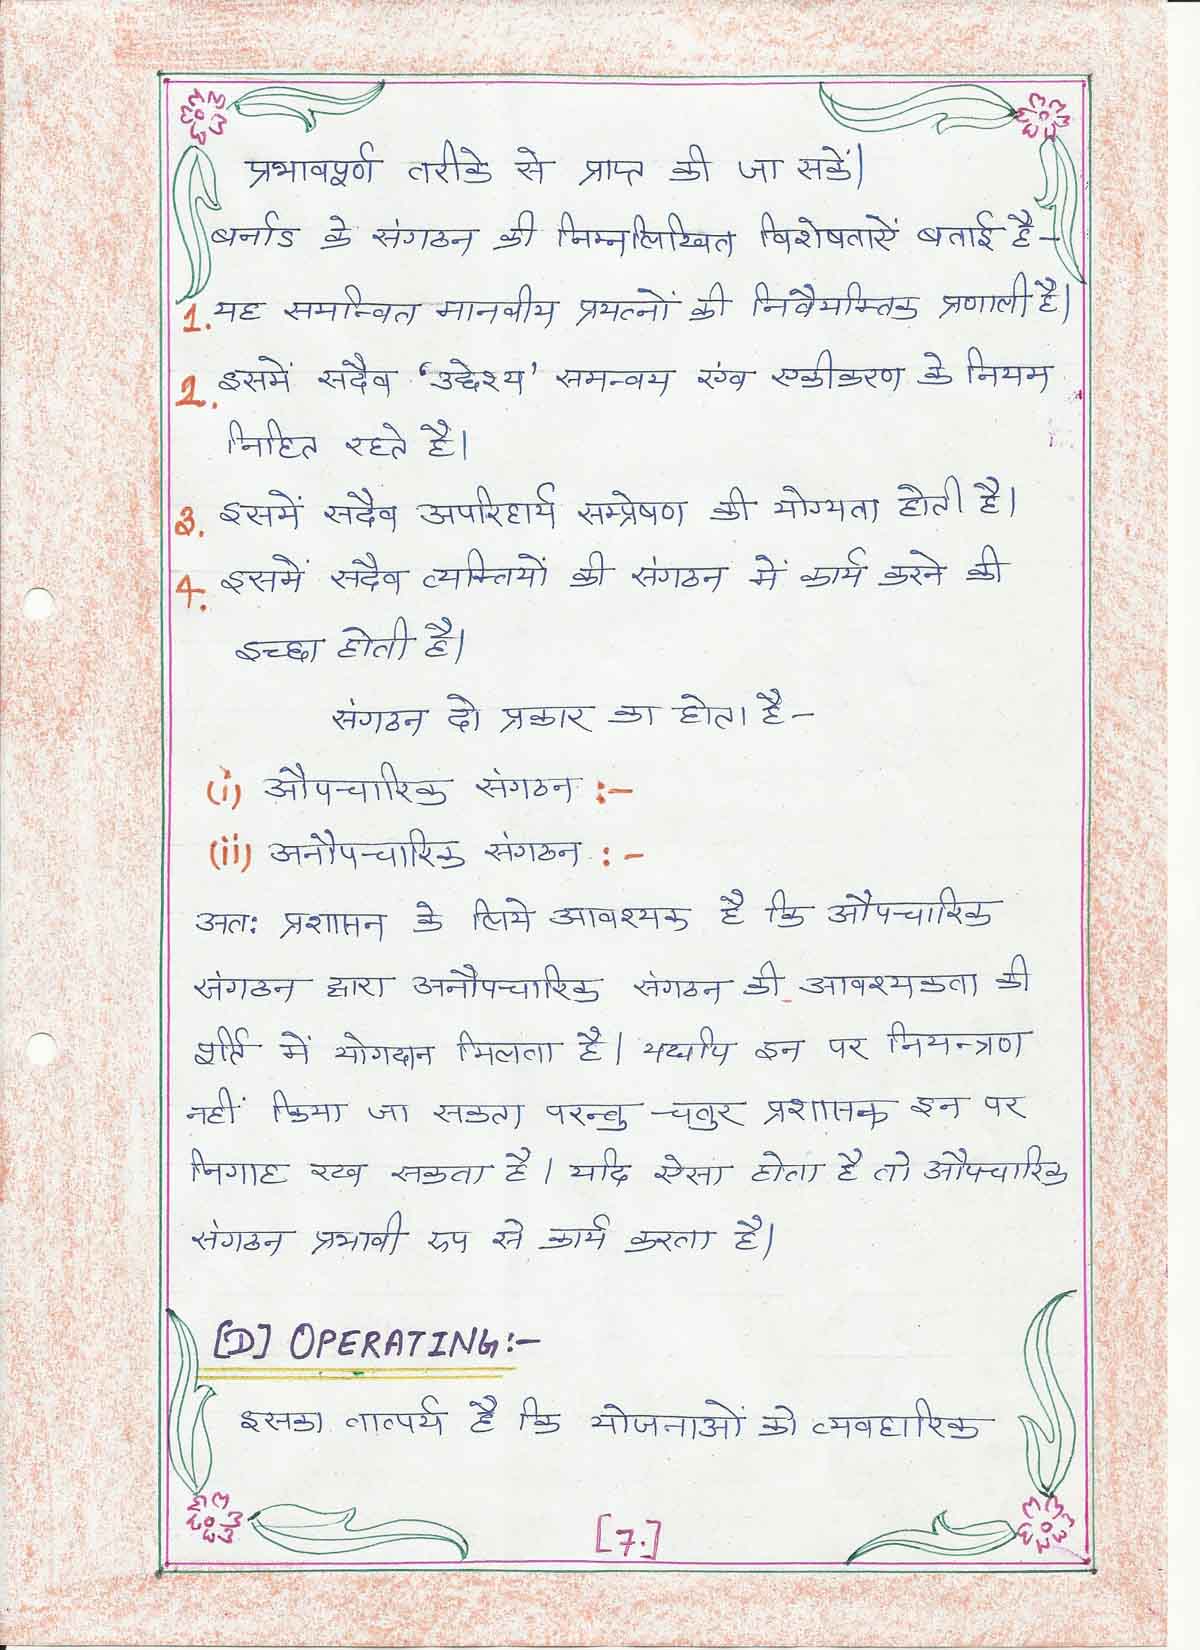 प्रभावपूर्ण तरीके से प्राप्त की जा सकें।
बर्नाड के संगठन की निम्नलिखित विशेषताऐं बताई है –
1. यह समन्वित मानवीय प्रयत्नों की निवैयक्तिक प्रणाली है।
2. इसमें सदैव 'उद्देश्य' समन्वय एंव एकीकरण के नियम
निहित रहते है।
3. इसमें सदैव अपरिहार्य सम्प्रेषण की योग्यता होती है।
4. इसमें सदैव व्यक्तियों की संगठन में कार्य करने की
इच्छा होती है।
संगठन दो प्रकार का होता है –
(i) औपचारिक संगठन :-
(ii) अनौपचारिक संगठन :-
अतः प्रशासन के लिये आवश्यक है कि औपचारिक
संगठन द्वारा अनौपचारिक संगठन की आवश्यकता की
में योगदान मिलता है। यद्यपि इन पर नियन्त्रण
नहीं किया जा सकता परन्तु चतुर प्रशासक इन पर
निगाह रख सकता है। यदि ऐसा होता है तो औपचारिक
संगठन प्रभावी रुप से कार्य करता है।
[D] OPERATING:-
इसका तात्पर्य है कि योजनाओं को व्यवहारिक
[7.]